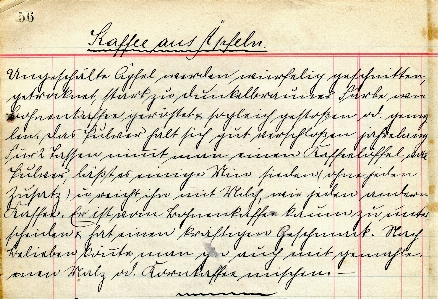 56
Kaffee aus Äpfeln.
Ungeschälte Äpfel werden würfelig geschnitten,
getrocknet, stark zu dunkelbrauner Farbe wie
Bohnenkaffee geröstet & sogleich gestoßen od. gemah-
len. Das Pulver hält sich gut verschlossen jahrelang.
Für 2 Tassen nimmt man einen Kaffeelöffel
Pulver läßt es einige Min sieden (ohne jeden
Zusatz) u. reicht ihn mit Milch, wie jeden andern
Kaffee. Er ist vom Bohnenkaffee kaum zu unter
scheiden & hat einen kräftigen Geschmack. Nach
Belieben könnte man ihn auch mit gemahle-
nen Malz od. Kornkaffee mischen. —